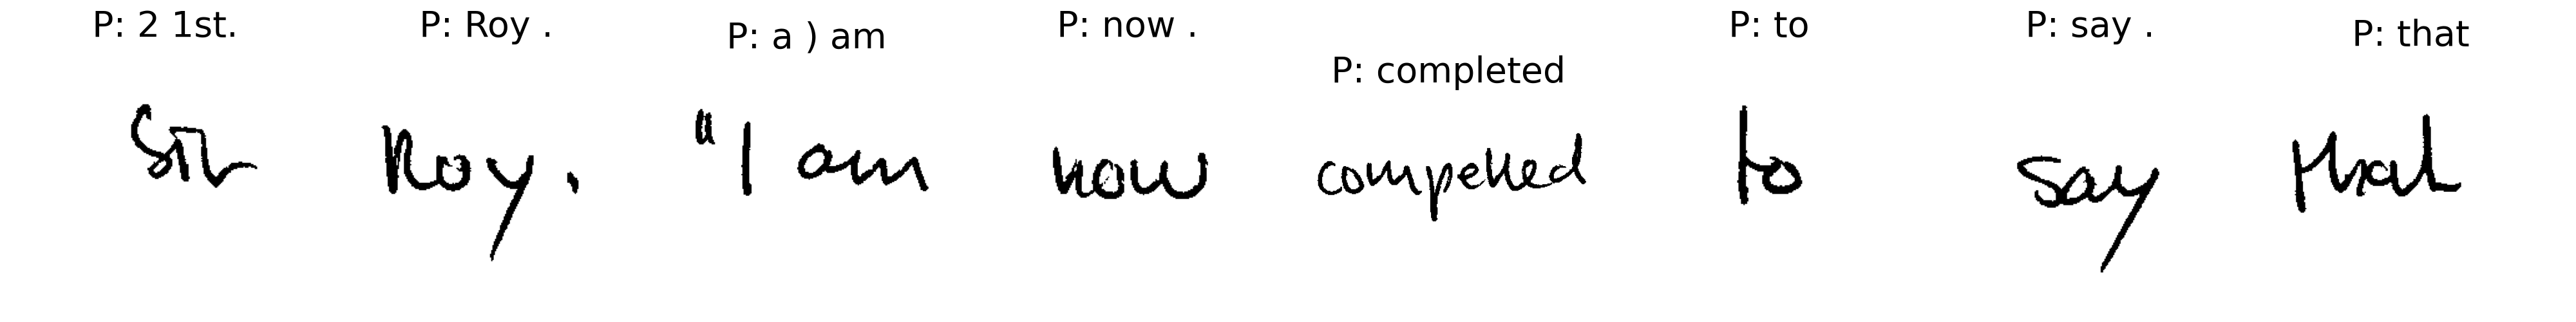 P: 2 1st. P: Roy . P: a ) am P: now . P: completed P: to P: say . P: that
Sir Roy. "I am now compelled to say that